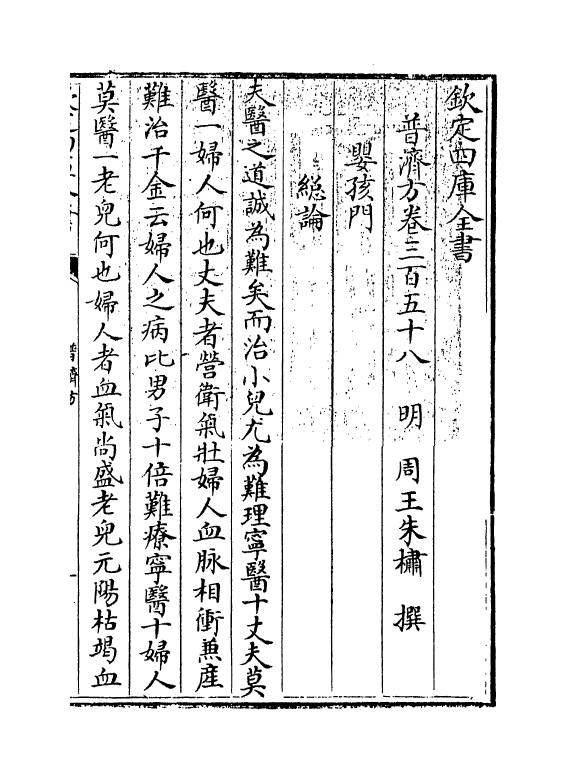 欽定四庫全書
普濟方卷三百五十八　明　周王朱橚　撰
嬰孩門
總論
夫醫之道誠為難矣而治小兒尤為難理寧醫十丈夫莫
醫一婦人何也丈夫者營衛氣壯婦人血脉相衝兼產
難治千金云婦人之病比男子十倍難療寧醫十婦人
莫醫一老兒何也婦人者血氣尚盛老兒元陽枯竭血
普濟方
一